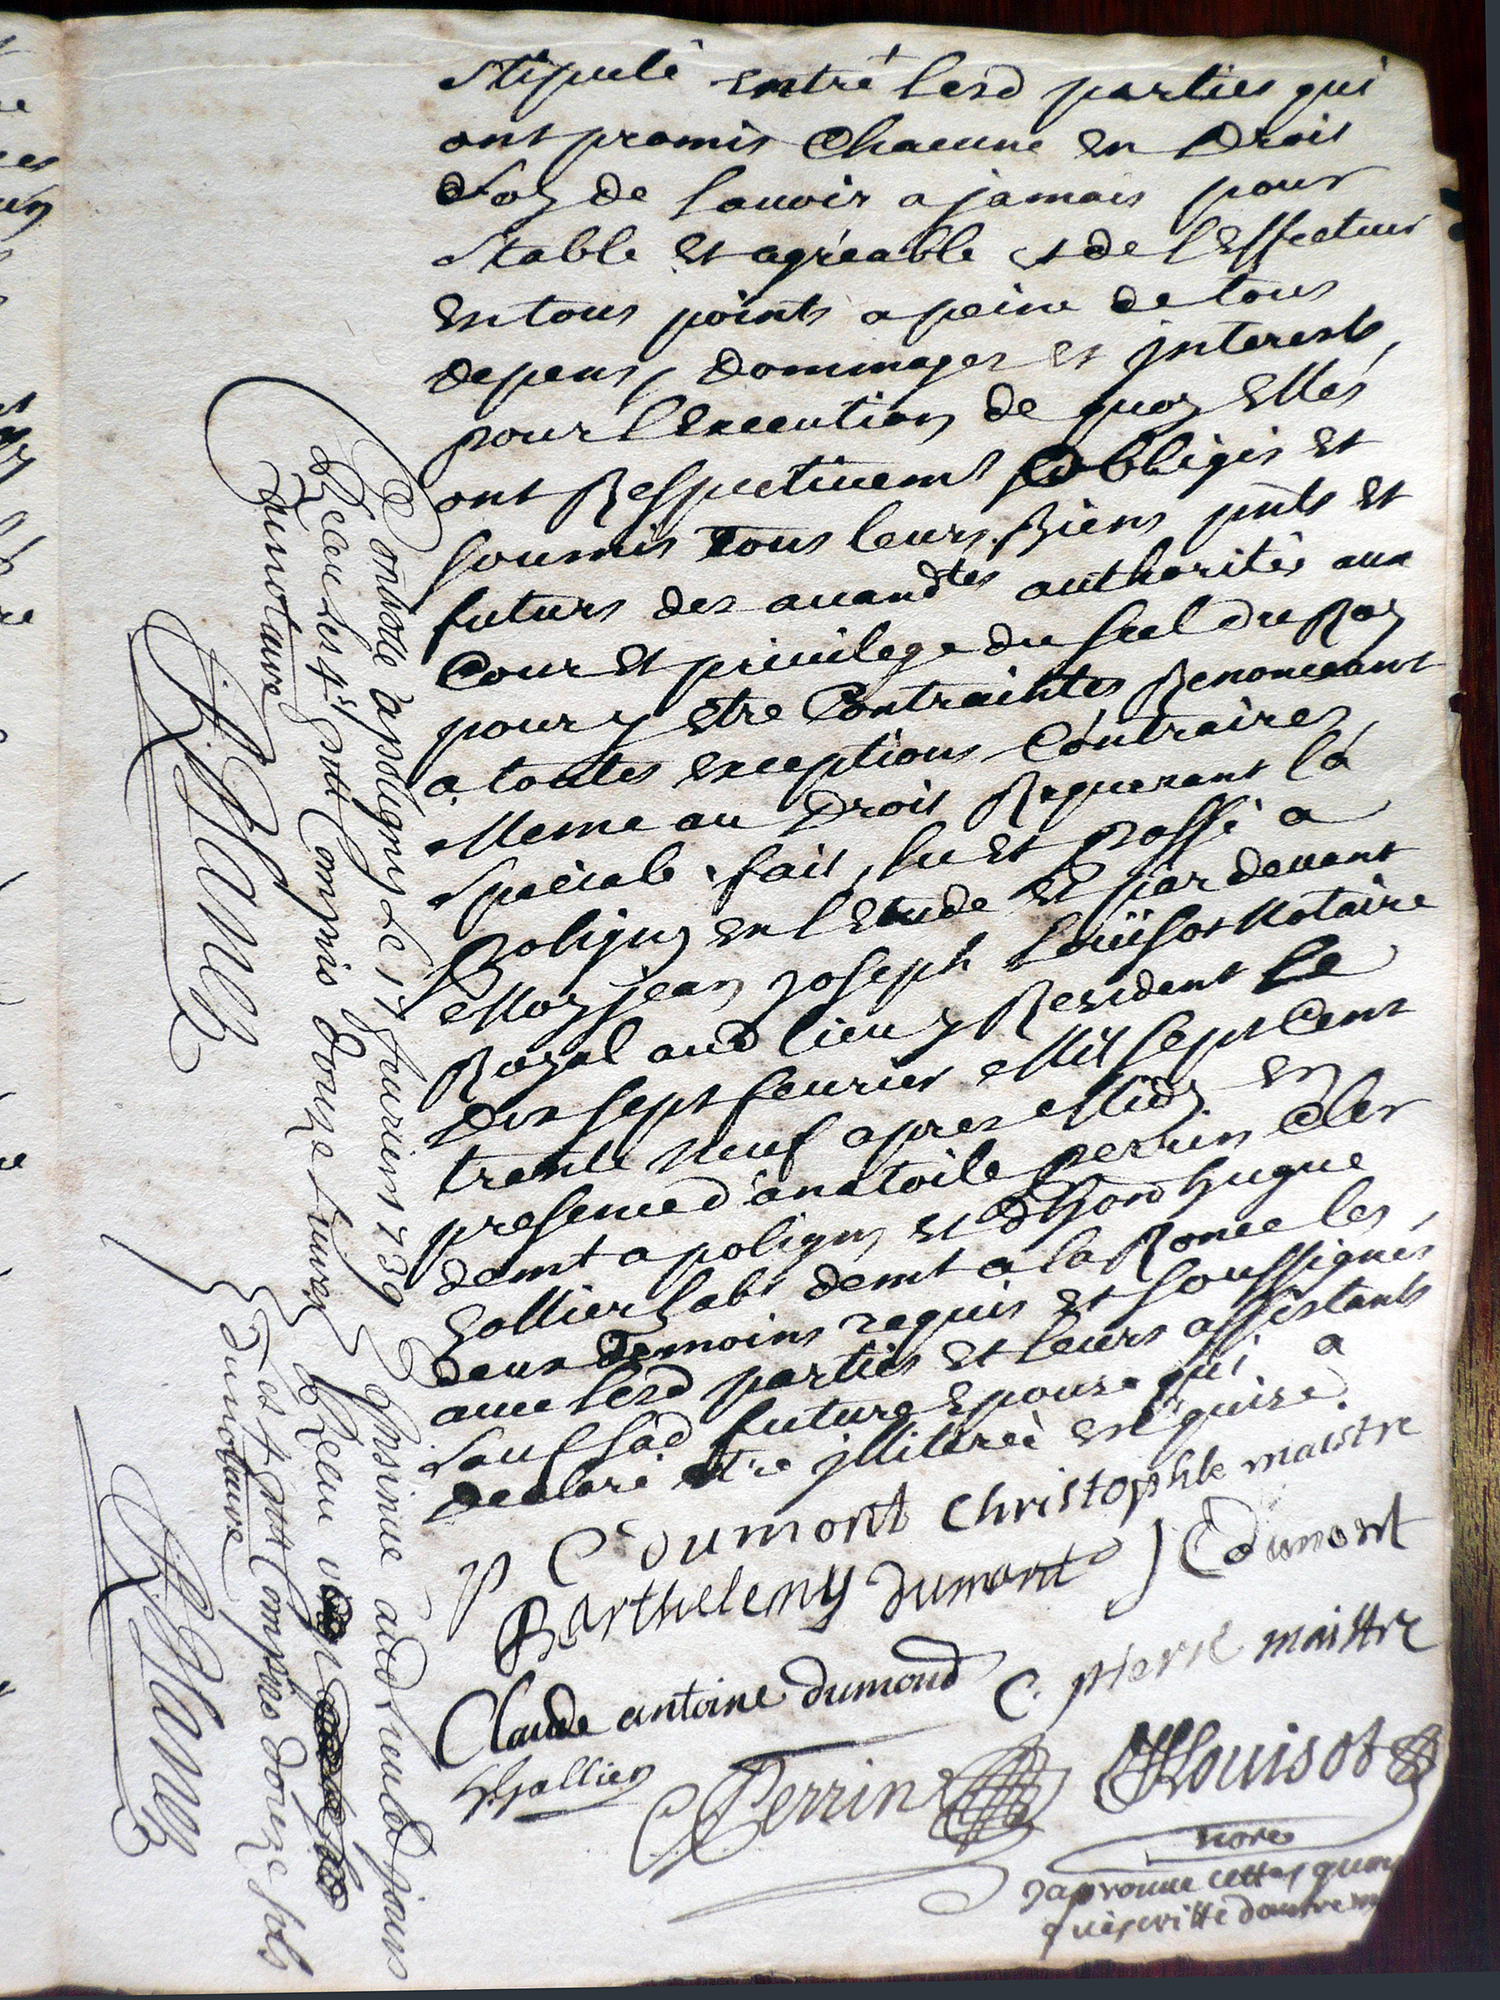 stipulé entre lesd parties qui
ont promis Chacune en Droit
Soy de lauoir a jamais pour
stable et agréable et de l'effectuer
en tous points a peine de tous
depens, dommages et jnterests,
pour l'execution de quoy elles
ont Respectivemt obligés et
soumis tous leurs Biens pnts et
futurs des auandtes authorités aux
Cour et priuilege du scel du Roy
pour y etre Contraintes Renonceant
a toutes exceptions Contraires,
Meme au Droit Requerant la
speciale, fait, lu et passé a
Poligny en l'Etude et par deuant
Moy jean joseph Loüisot Notaire
Royal aud lieu y Resident Le
Dix sept feurier Mil sept Cent
trente neuf apres Midy en
presence d'anatoile perrin Cler
demt a poligny et d'hond hugue
Gollier labr demt a la Ronce les
deux Temoins requis et soussignés,
auec lesd parties et leurs assistants
sauf lad future Epouse qui a
declaré etre jlliterée enquise.
P C dumont Christophle maistre
Barthelemy dumont J C dumont
Claude antoine dumond C. pierre maistre
h Gallier Perrin JJLouisot
nore
japrouue cette
quescritte dautre
Controllé à poligny le 17 feurier 1739
Receu les 4s pr lt Compris Douze liures
du notaire
Blanc
Insinué aud lieu led jours
Receu
les 4s pr lt Compris Douze sols
du notaire
Blanc